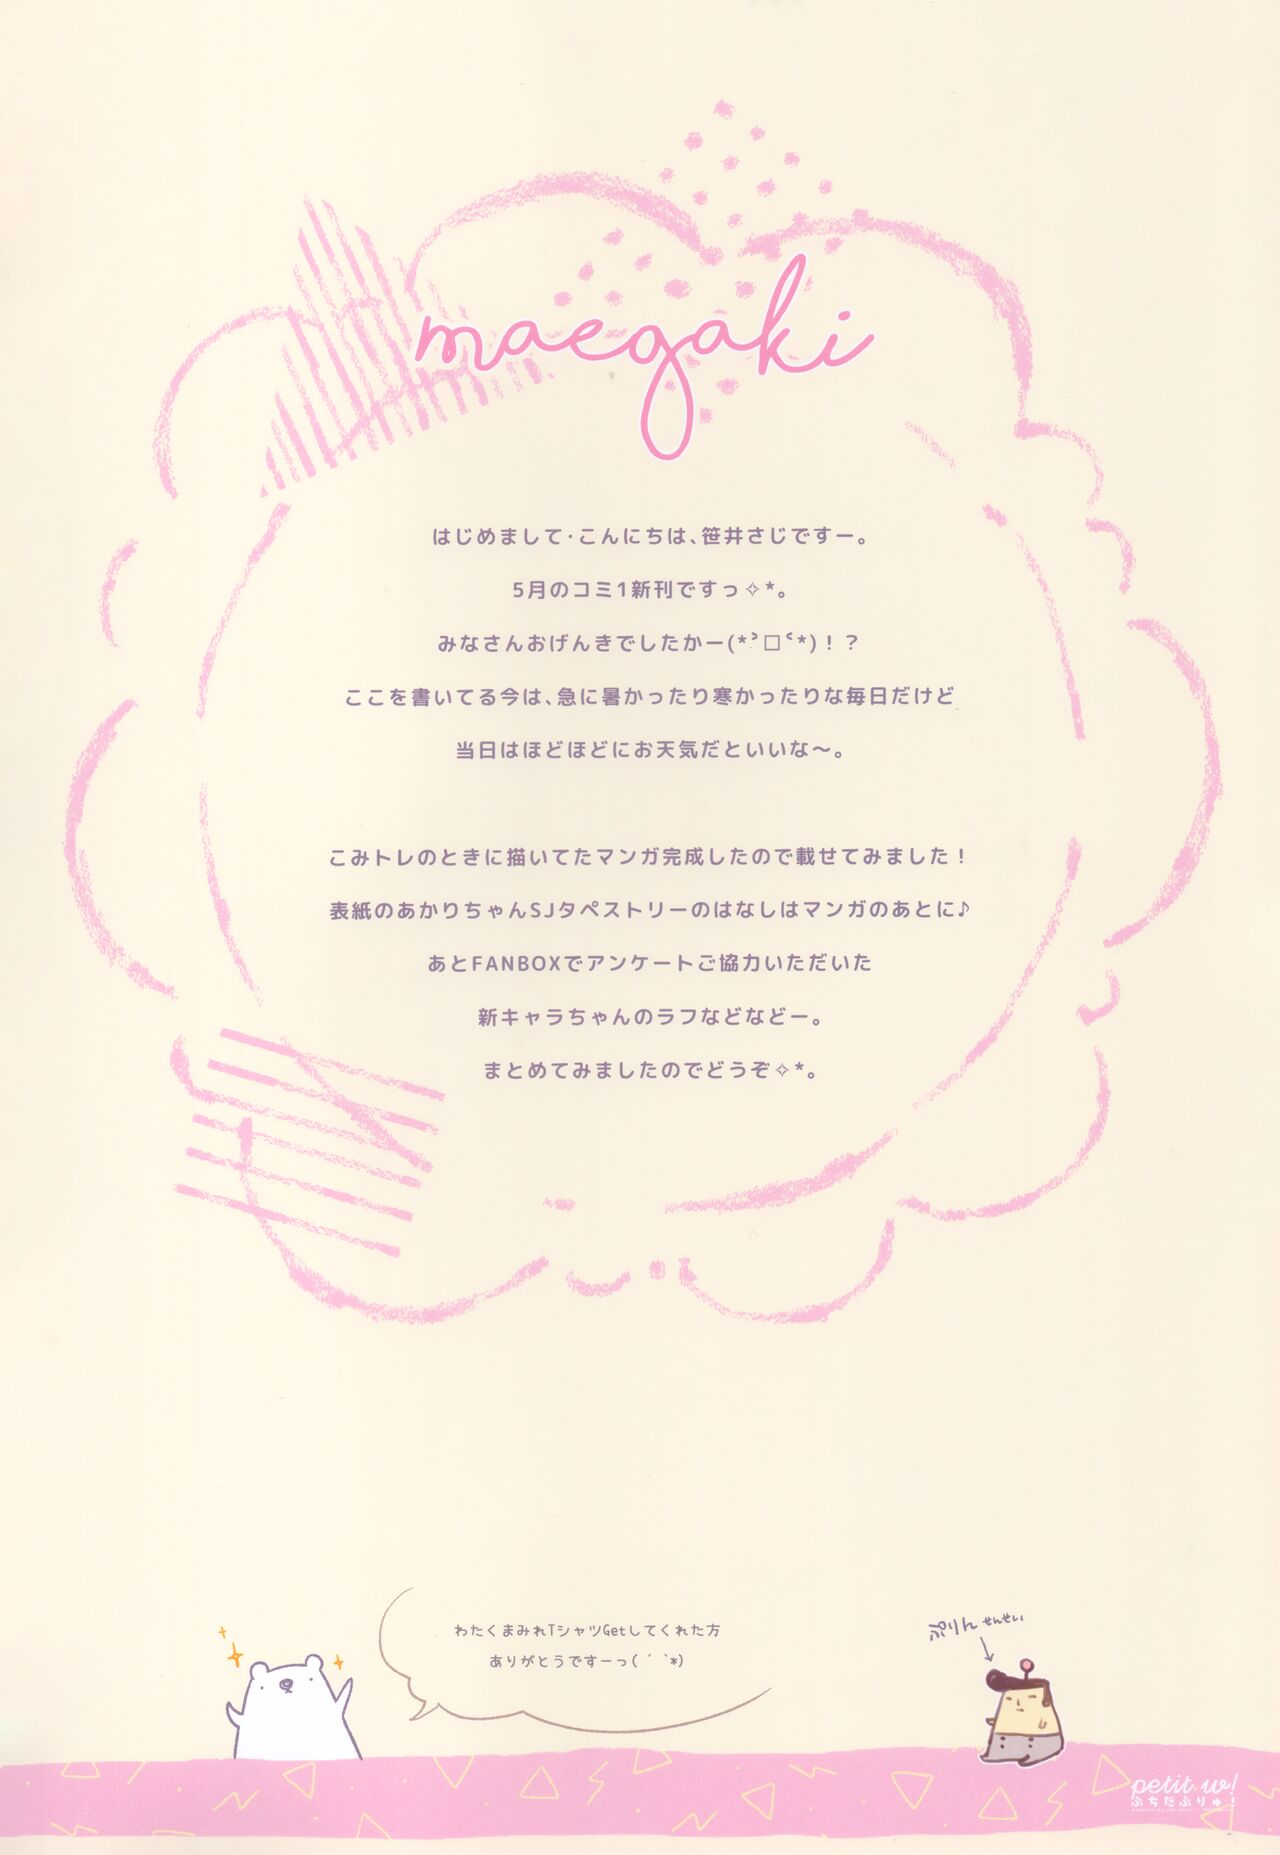 maegaki
はじめまして・こんにちは、笹井さじですー。
5月のコミ1新刊ですっ✧*。
みなさんおげんきでしたかー(*˃̀□˂́*)！？
ここを書いてる今は、急に暑かったり寒かったりな毎日だけど
当日はほどほどにお天気だといいな〜。
こみトレのときに描いてたマンガ完成したので載せてみました！
表紙のあかりちゃんSJタペストリーのはなしはマンガのあとに♪
あとFANBOXでアンケートご協力いただいた
新キャラちゃんのラフなどなどー。
まとめてみましたのでどうぞ✧*。
わたくまみれTシャツGetしてくれた方
ありがとうですーっ(´ `*)
ぷりんせんせい
petit.w!
ぷちだぶりゅ！